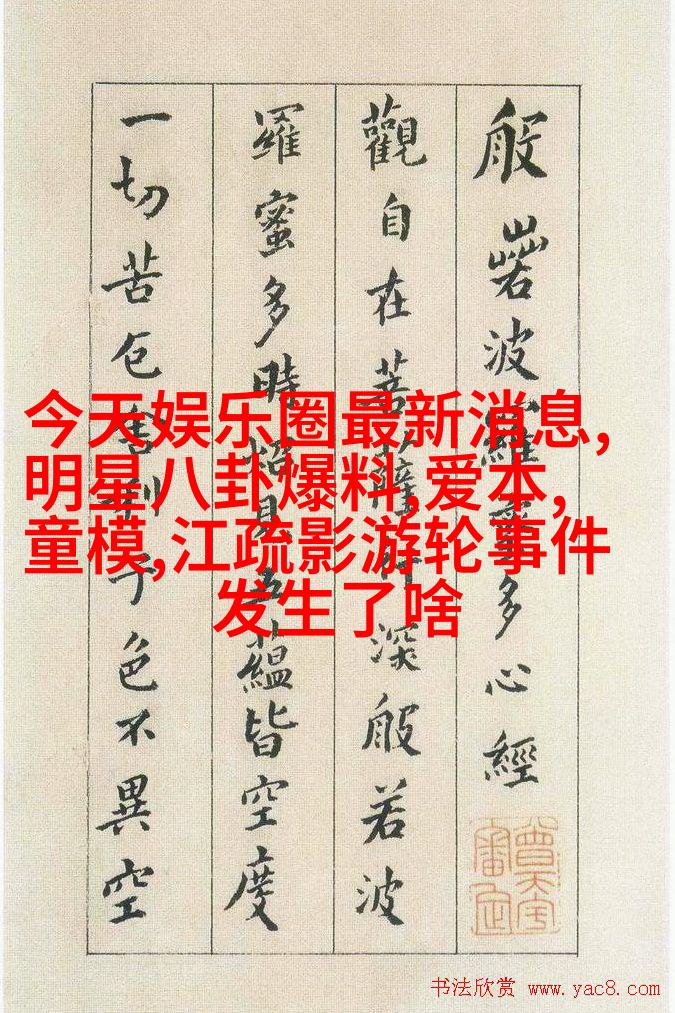 般若波羅蜜多心經
觀自在菩薩行深般若波
羅蜜多時照見五蘊皆空度
一切苦厄舍利子色不異空
今天娱乐圈最新消息,
明星八卦爆料,爱本,
童模,江疏影游轮事件
发生了啥
书法欣赏 www.yac8.com